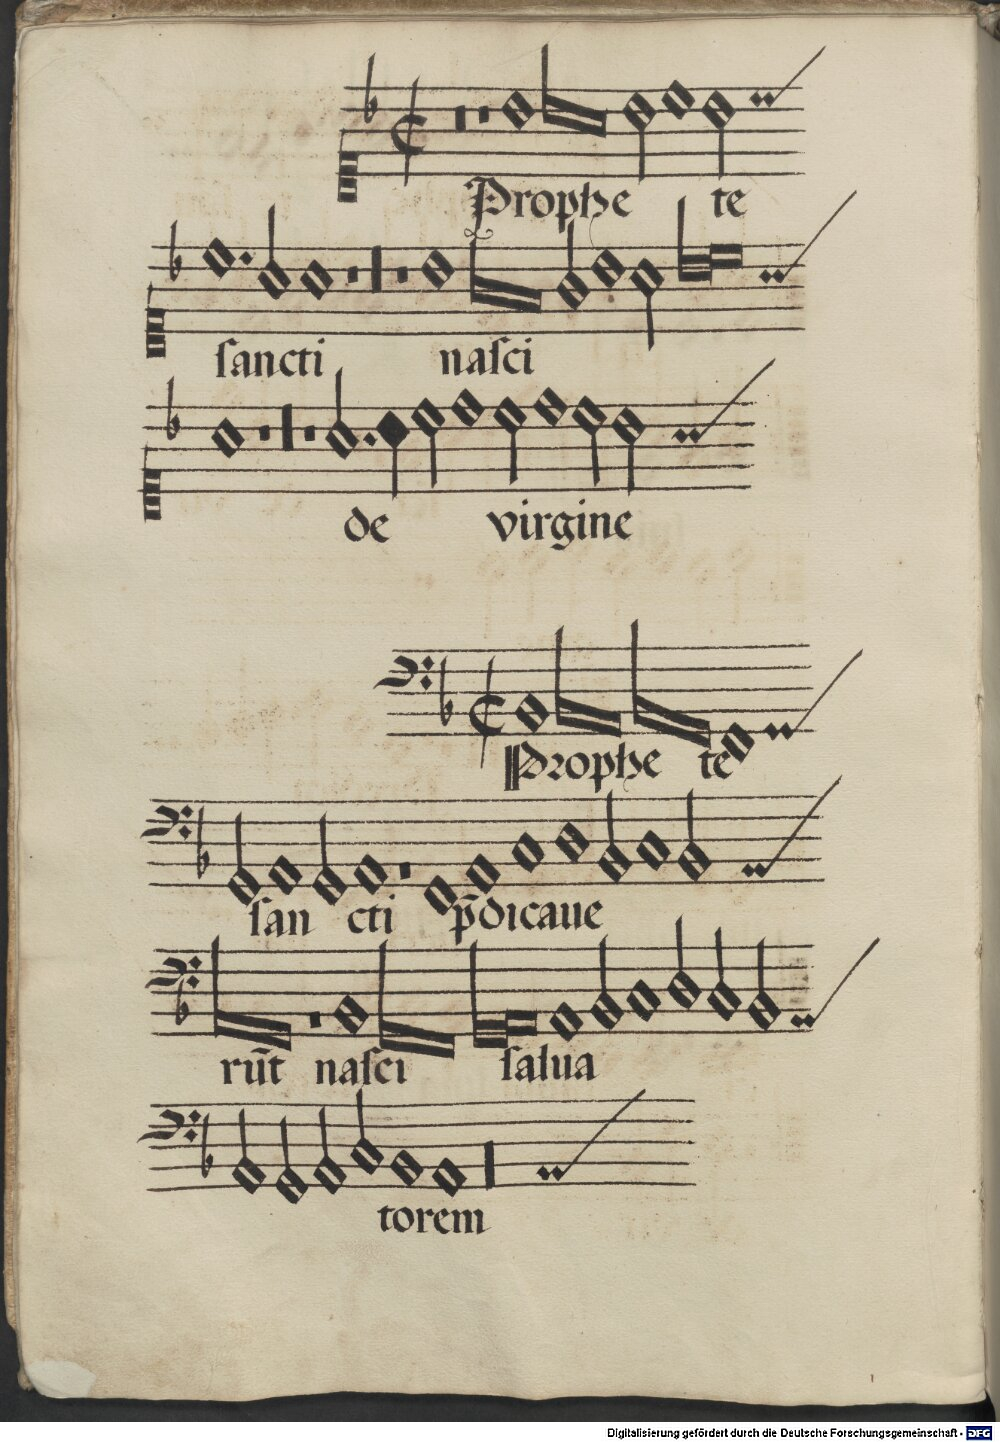 Prophe te
sancti nasci
de virgine
Prophe te
san cti p̄dicaue
rūt nasci salua
torem
Digitalisierung gefördert durch die Deutsche Forschungsgemeinschaft - DFG